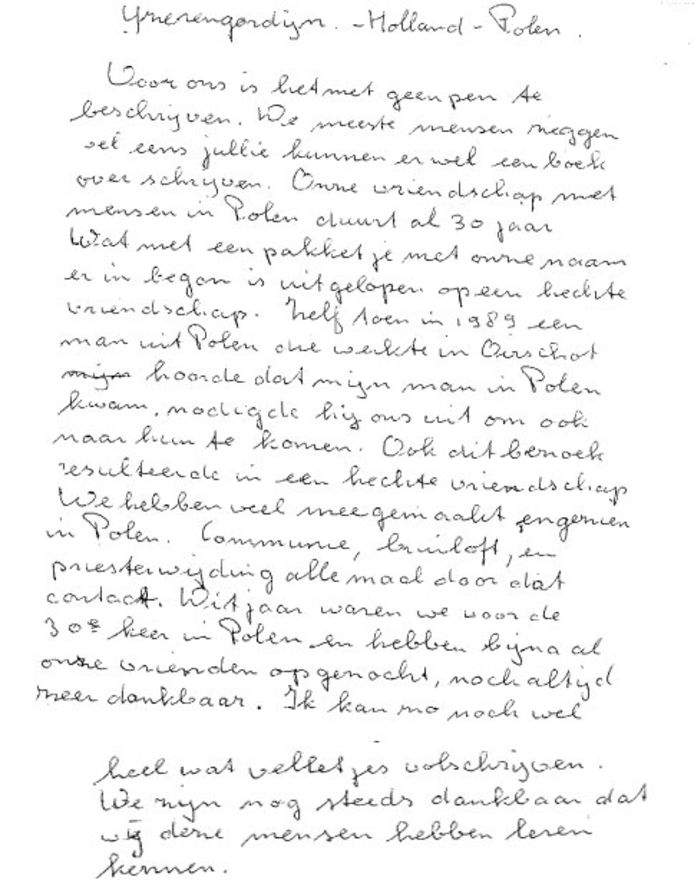 Ijzerengordijn. - Holland - Polen.
Voor ons is het met geen pen te
beschrijven. De meeste mensen zeggen
vel eens jullie kunnen er wel een boek
over schrijven. Onze vriendschap met
mensen in Polen duurt al 30 jaar
Wat met een pakketje met onze naam
er in begon is uitgelopen op een hechte
vriendschap. Zelf toen in 1989 een
man uit Polen die werkte in Oirschot
mijn hoorde dat mijn man in Polen
kwam, nodigde hij ons uit om ook
naar hun te komen. Ook dit bezoek
resulteerde in een hechte vriendschap
We hebben veel meegemaakt en gezien
in Polen. Communie, bruiloft, en
priesterwijding allemaal door dat
contact. Dit jaar waren we voor de
30e keer in Polen en hebben bijna al
onze vrienden opgezocht, noch altijd
zeer dankbaar. Ik kan zo noch wel
heel wat velletjes volschrijven.
We zijn nog steeds dankbaar dat
wij deze mensen hebben leren
kennen.